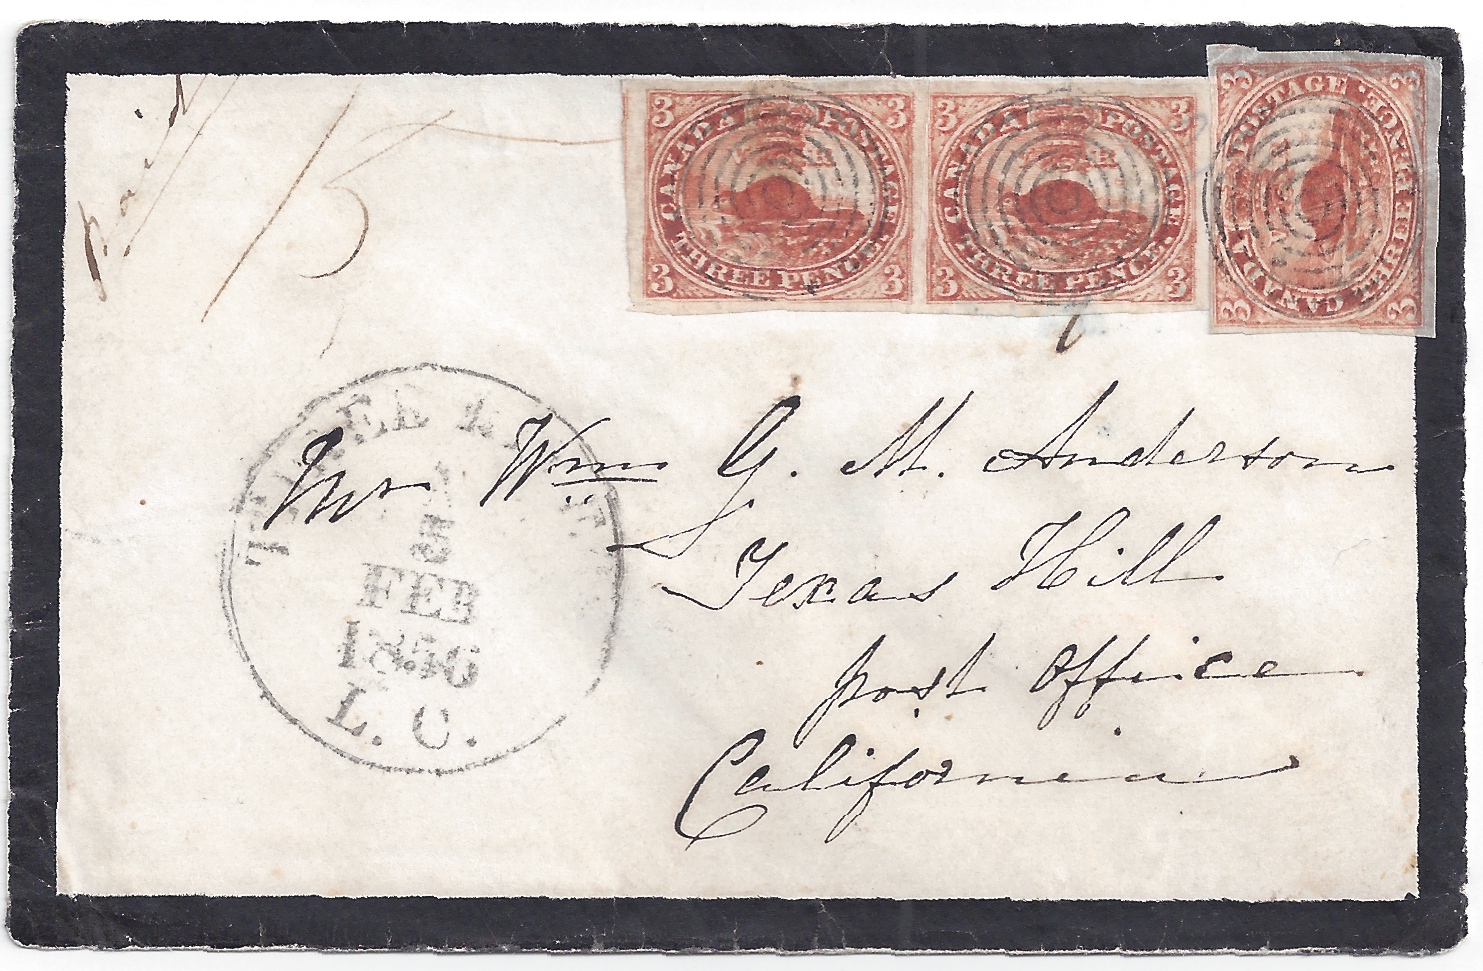 paid 1/3
3 CANADA POSTAGE 3
3 THREE PENCE. 3
3 CANADA POSTAGE 3
3 THREE PENCE. 3
3 CANADA POSTAGE. 3
3 THREE PENCE. 3
THREE
5
FEB
1856
L. C.
Mr Wm G. M. Anderson
Texas Hill
post office
California